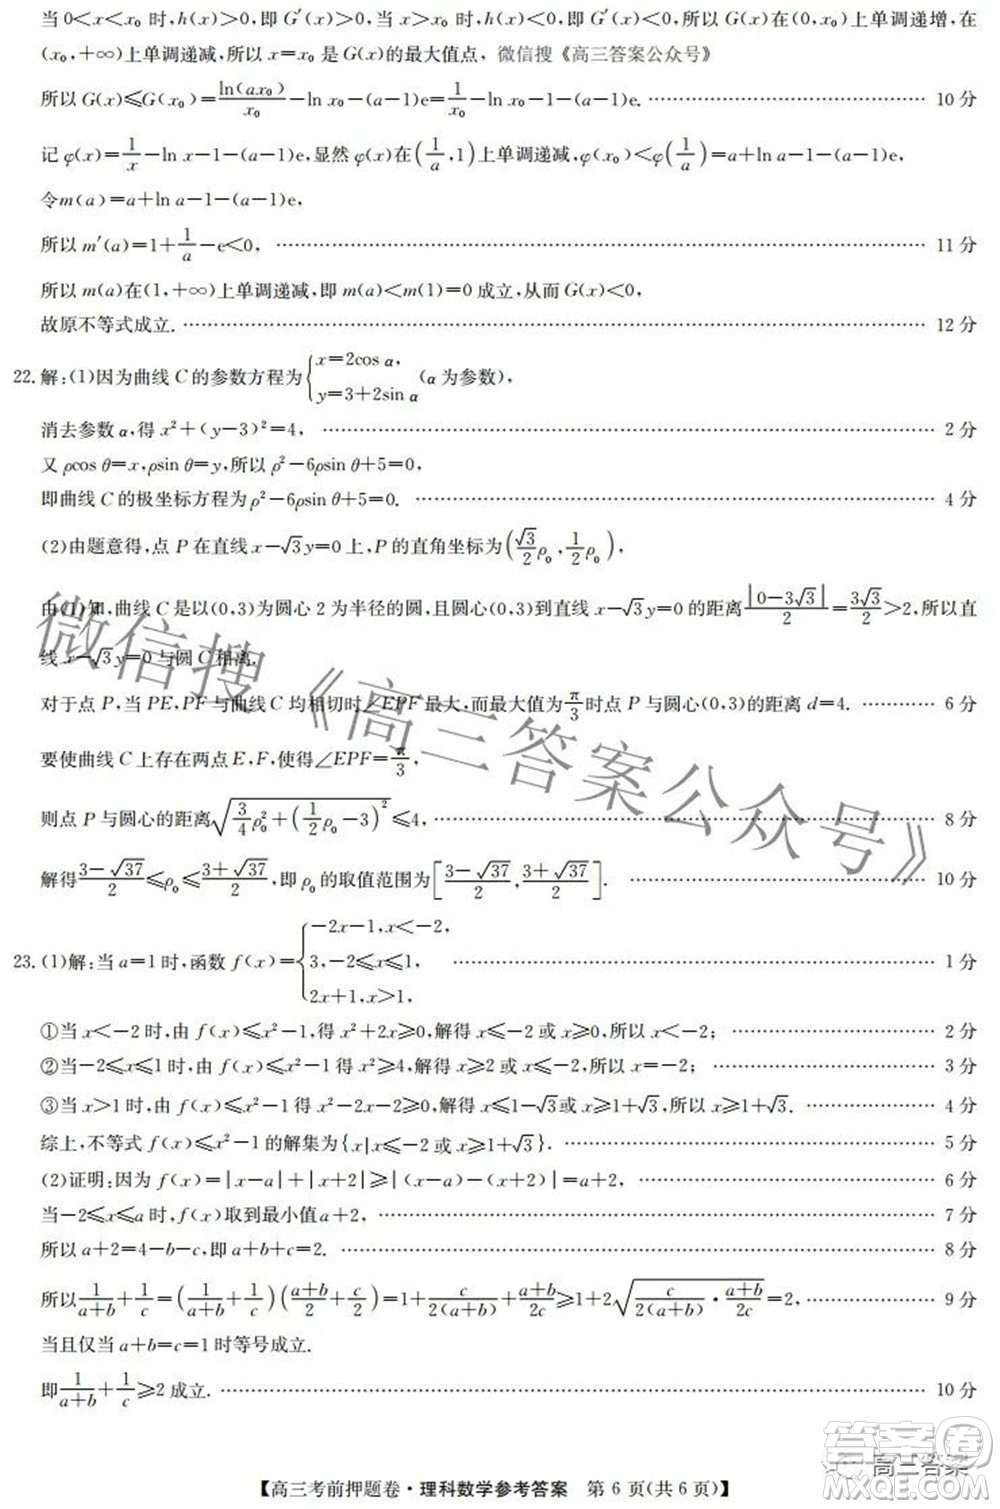 当 0<x<x₀ 时,h(x)>0,即 G′(x)>0,当 x>x₀ 时,h(x)<0,即 G′(x)<0,所以 G(x)在(0,x₀)上单调递增,在
(x₀,+∞)上单调递减,所以 x=x₀ 是 G(x)的最大值点, 微信搜《高三答案公众号》
所以 G(x)≤G(x₀)=ln(ax₀)/x₀-ln x₀-(a-1)e=1/x₀-ln x₀-1-(a-1)e. …… 10 分
记 φ(x)=1/x-ln x-1-(a-1)e,显然 φ(x)在(1/a,1)上单调递减,φ(x₀)<φ(1/a)=a+ln a-1-(a-1)e,
令 m(a)=a+ln a-1-(a-1)e,
所以 m′(a)=1+1/a-e<0, …… 11 分
所以 m(a)在(1,+∞)上单调递减,即 m(a)<m(1)=0 成立,从而 G(x)<0,
故原不等式成立. …… 12 分
22.解:(1)因为曲线 C 的参数方程为{x=2cos α, y=3+2sin α (α 为参数),
消去参数 α,得 x²+(y-3)²=4, …… 2 分
又 ρcos θ=x,ρsin θ=y,所以 ρ²-6ρsin θ+5=0,
即曲线 C 的极坐标方程为 ρ²-6ρsin θ+5=0. …… 4 分
(2)由题意得,点 P 在直线 x-√3y=0 上,P 的直角坐标为(√3/2 ρ₀,1/2 ρ₀),
由(1)知,曲线 C 是以(0,3)为圆心 2 为半径的圆,且圆心(0,3)到直线 x-√3y=0 的距离|0-3√3|/2=3√3/2>2,所以直
线 x-√3y=0 与圆 C 相离.
对于点 P,当 PE,PF 与曲线 C 均相切时∠EPF 最大,而最大值为π/3时点 P 与圆心(0,3)的距离 d=4. …… 6 分
要使曲线 C 上存在两点 E,F,使得∠EPF=π/3,
则点 P 与圆心的距离√(3/4 ρ₀²+(1/2 ρ₀-3)²)≤4, …… 8 分
解得(3-√37)/2≤ρ₀≤(3+√37)/2,即 ρ₀ 的取值范围为[(3-√37)/2,(3+√37)/2]. …… 10 分
23.(1)解:当 a=1 时,函数 f(x)={-2x-1,x<-2, 3,-2≤x≤1, 2x+1,x>1, …… 1 分
①当 x<-2 时,由 f(x)≤x²-1,得 x²+2x≥0,解得 x≤-2 或 x≥0,所以 x<-2; …… 2 分
②当-2≤x≤1 时,由 f(x)≤x²-1 得 x²≥4,解得 x≥2 或 x≤-2,所以 x=-2; …… 3 分
③当 x>1 时,由 f(x)≤x²-1 得 x²-2x-2≥0,解得 x≤1-√3或 x≥1+√3,所以 x≥1+√3. …… 4 分
综上,不等式 f(x)≤x²-1 的解集为{x|x≤-2 或 x≥1+√3}. …… 5 分
(2)证明:因为 f(x)=|x-a|+|x+2|≥|(x-a)-(x+2)|=a+2, …… 6 分
当-2≤x≤a 时,f(x)取到最小值 a+2, …… 7 分
所以 a+2=4-b-c,即 a+b+c=2. …… 8 分
所以1/(a+b)+1/c=(1/(a+b)+1/c)((a+b)/2+c/2)=1+c/2(a+b)+(a+b)/2c≥1+2√(c/2(a+b)·(a+b)/2c)=2, …… 9 分
当且仅当 a+b=c=1 时等号成立.
即1/(a+b)+1/c≥2 成立. …… 10 分
微信搜《高三答案公众号》
答案圈
高三答案
【高三考前押题卷·理科数学参考答案 第 6 页(共 6 页)】